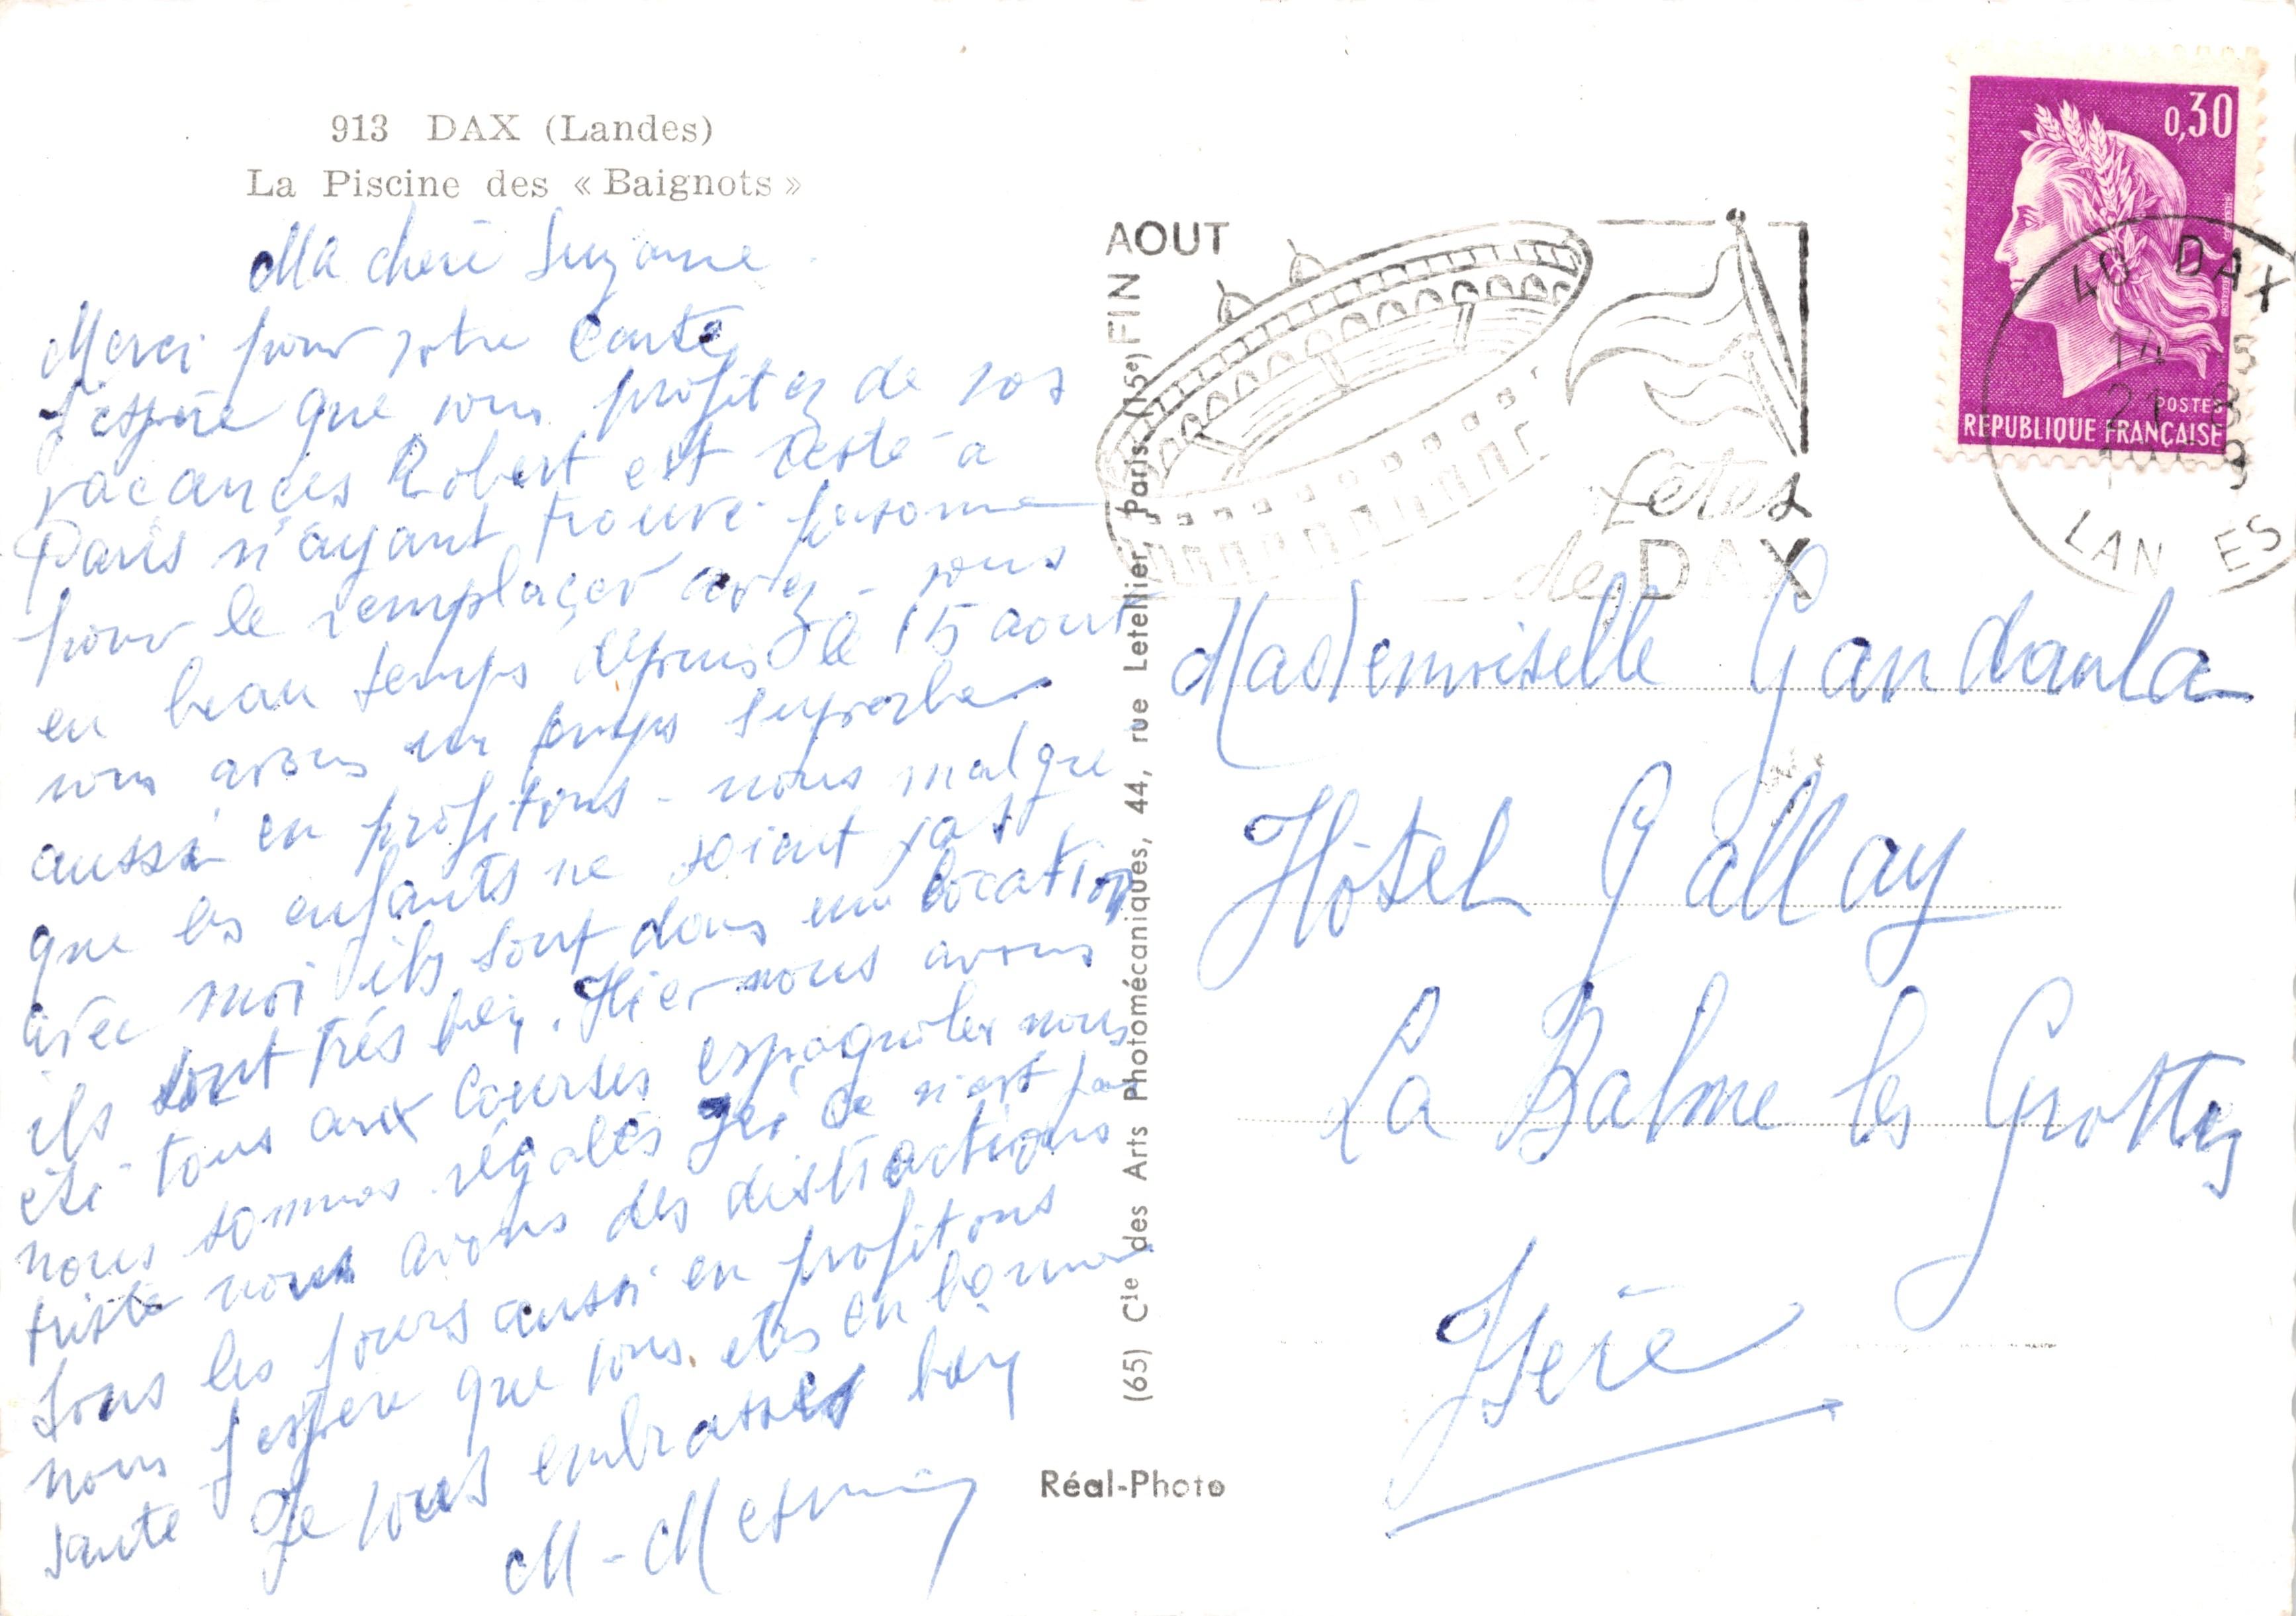 913 DAX (Landes)
La Piscine des « Baignots »
Ma cheré Suzanne.
Merci pour votre Carte
J'espére que vous profitez de vos
vacances Robert est resté à
Paris n'ayant trouvé personne
pour le remplaçer avez-vous
eu beau temps depuis le 15 aout
nous avons un temps superbe
aussi en profitons-nous malgre
que les enfants ne soient pas
avec moi ils sont dans une location
ils sont trés bien. Hier nous avons
été tous aux Courses espagnoles nous
nous sommes régalés Ici ce n'est pas
triste nous avons des distractions
tous les jours aussi en profitons
nous J'espere que vous etes en bonne
santé Je vous embrasses bien
AOUT
FIN
Fêtes
de DAX
0,30
POSTES
REPUBLIQUE FRANÇAISE
40 DAX
LANDES
(65) Cie des Arts Photomécaniques, 44, rue Letellier, Paris (15e)
Réal-Photo
Mademoiselle Gandaula
Hôtel Gallay
La Balme les Grottes
Isère